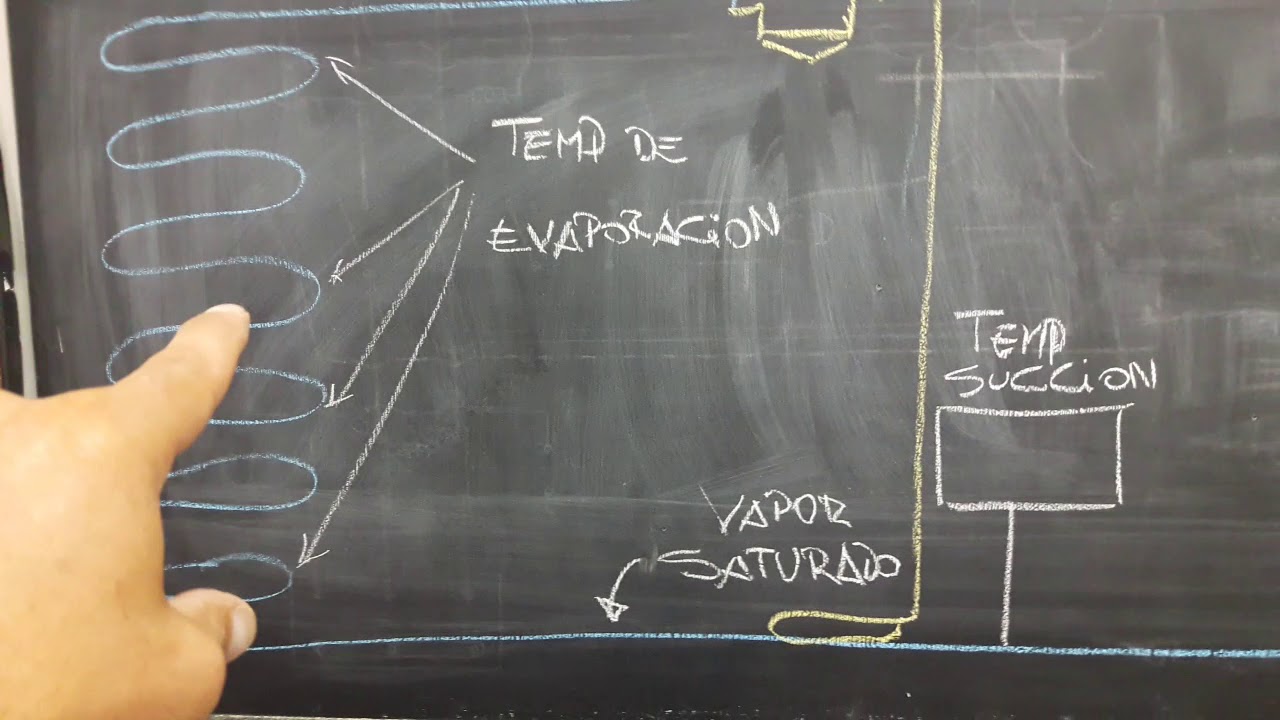 TEMP DE
EVAPORACION
TEMP
SUCCION
VAPOR
SATURADO